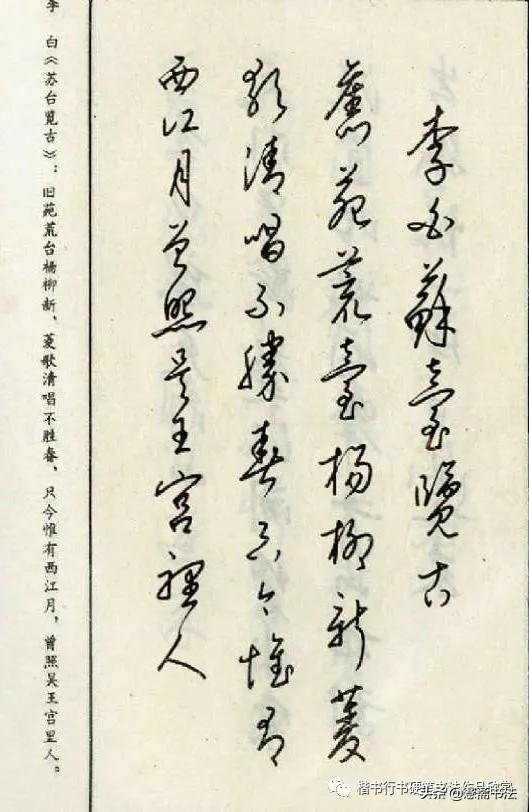 李白蘇臺覽古
舊苑荒臺楊柳新菱
歌清唱不勝春只今惟有
西江月曾照吴王宫裡人
李 白《苏台览古》：旧苑荒台杨柳新，菱歌清唱不胜春，只今惟有西江月，曾照吴王宫里人。
楷书行书硬笔书法作品欣赏
头条@惫斋书法